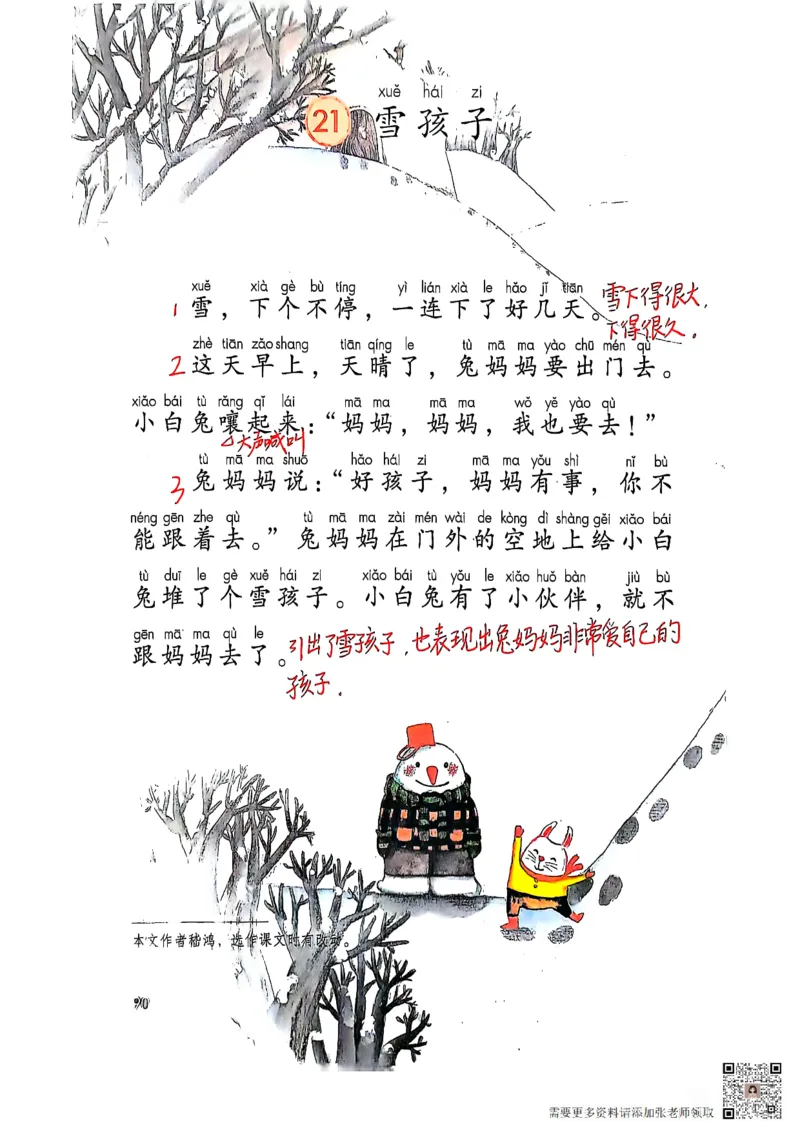 xuě hái zi
21 雪孩子
xuě xià gè bù tíng yì lián xià le hǎo jǐ tiān
1 雪，下个不停，一连下了好几天。雪下得很大，
下得很久．
zhè tiān zǎo shang tiān qíng le tù mā ma yào chū mén qù
2 这天早上，天晴了，兔妈妈要出门去。
xiǎo bái tù rǎng qǐ lái mā ma mā ma wǒ yě yào qù
小白兔嚷起来：“妈妈，妈妈，我也要去！”
大声喊叫
tù mā ma shuō hǎo hái zi mā ma yǒu shì nǐ bù
3 兔妈妈说：“好孩子，妈妈有事，你不
néng gēn zhe qù tù mā ma zài mén wài de kòng dì shàng gěi xiǎo bái
能跟着去。”兔妈妈在门外的空地上给小白
tù duī le gè xuě hái zi xiǎo bái tù yǒu le xiǎo huǒ bàn jiù bù
兔堆了个雪孩子。小白兔有了小伙伴，就不
gēn mā ma qù le
跟妈妈去了。引出了雪孩子，也表现出兔妈妈非常爱自己的
孩子．
本文作者嵇鸿，选作课文时有改动。
90
需要更多资料请添加张老师领取